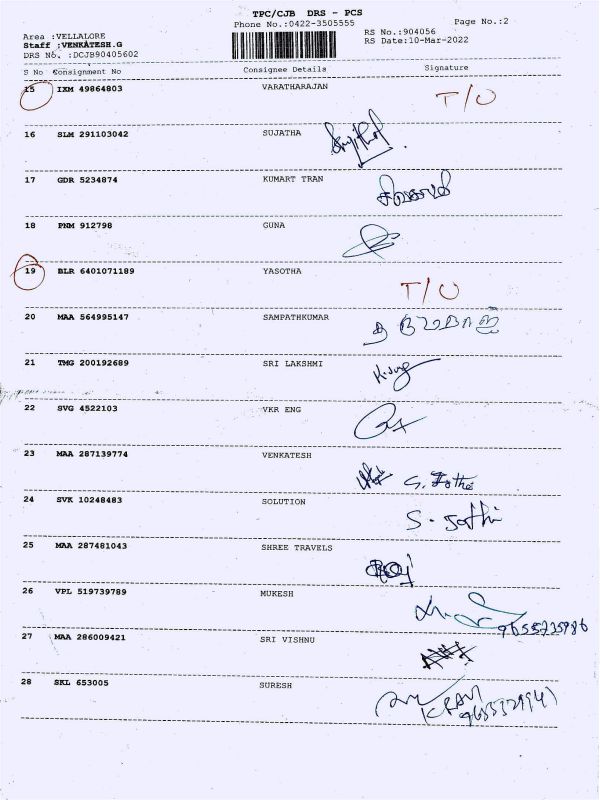 TPC/CJB DRS - PCS
Phone No.:0422-3505555
Page No.:2
Area :VELLALORE
RS No.:904056
Staff :VENKATESH.G
RS Date:10-Mar-2022
DRS No. :DCJB90405602
S No Consignment No Consignee Details Signature
15 IXM 49864803 VARATHARAJAN T/O
16 SLM 291103042 SUJATHA
17 GDR 5234874 KUMART TRAN
18 PNM 912798 GUNA
19 BLR 6401071189 YASOTHA T/O
20 MAA 564995147 SAMPATHKUMAR
21 TMG 200192689 SRI LAKSHMI
22 SVG 4522103 VKR ENG
23 MAA 287139774 VENKATESH
24 SVK 10248483 SOLUTION S. Jothi
25 MAA 287481043 SHREE TRAVELS
26 VPL 519739789 MUKESH
27 MAA 286009421 SRI VISHNU
28 SKL 653005 SURESH